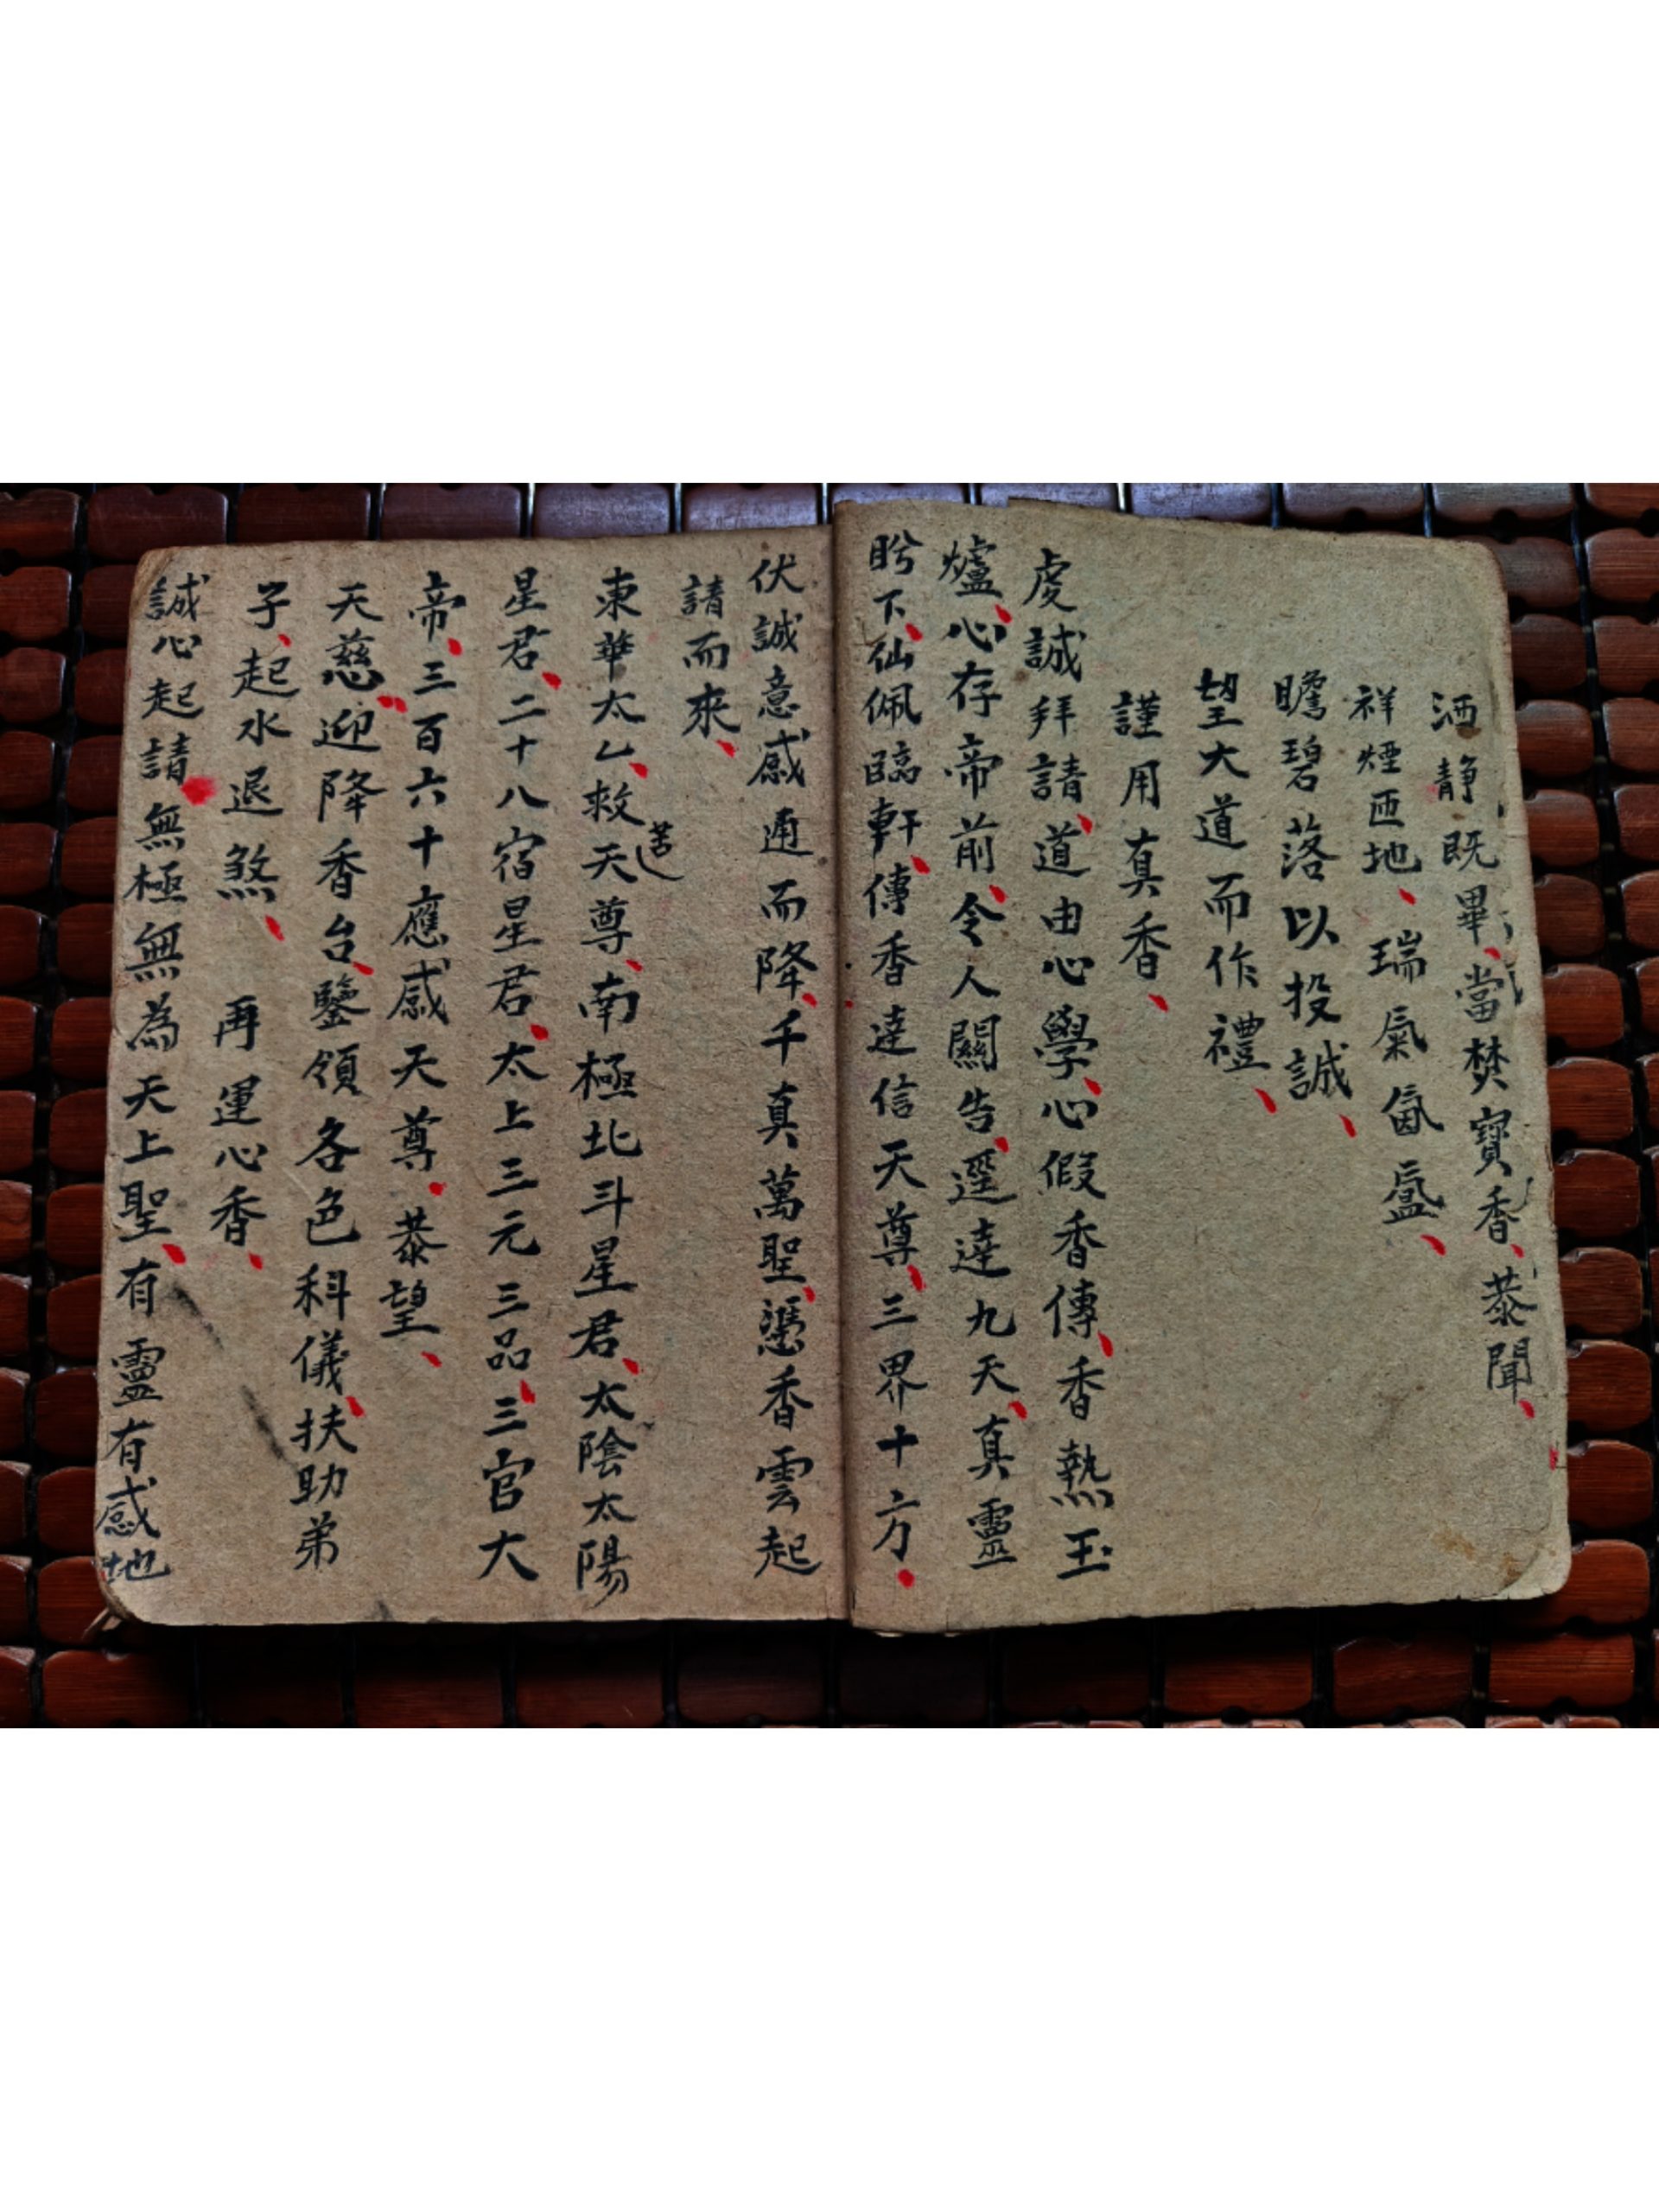 洒静既畢、當焚寶香、恭聞、
祥煙匝地、瑞氣氤氳、
瞻碧落以投誠、
望大道而作禮、
謹用真香、
虔誠拜請、道由心學、心假香傳、香熱玉
爐、心存帝前、令人關告、逕達九天、真靈
盻下、仙佩臨軒、傳香達信天尊、三界十方、
伏誠意感通而降、千真萬聖、憑香雲起
請而來、
東華太乙、救苦天尊、南極北斗星君、太陰太陽
星君、二十八宿星君、太上三元三品、三官大
帝、三百六十應感天尊、恭望、
天慈、迎降香台、鑒領各色科儀、扶助弟
子、起水退煞、再運心香、
誠心起請、無極無為天上聖、有靈有感地